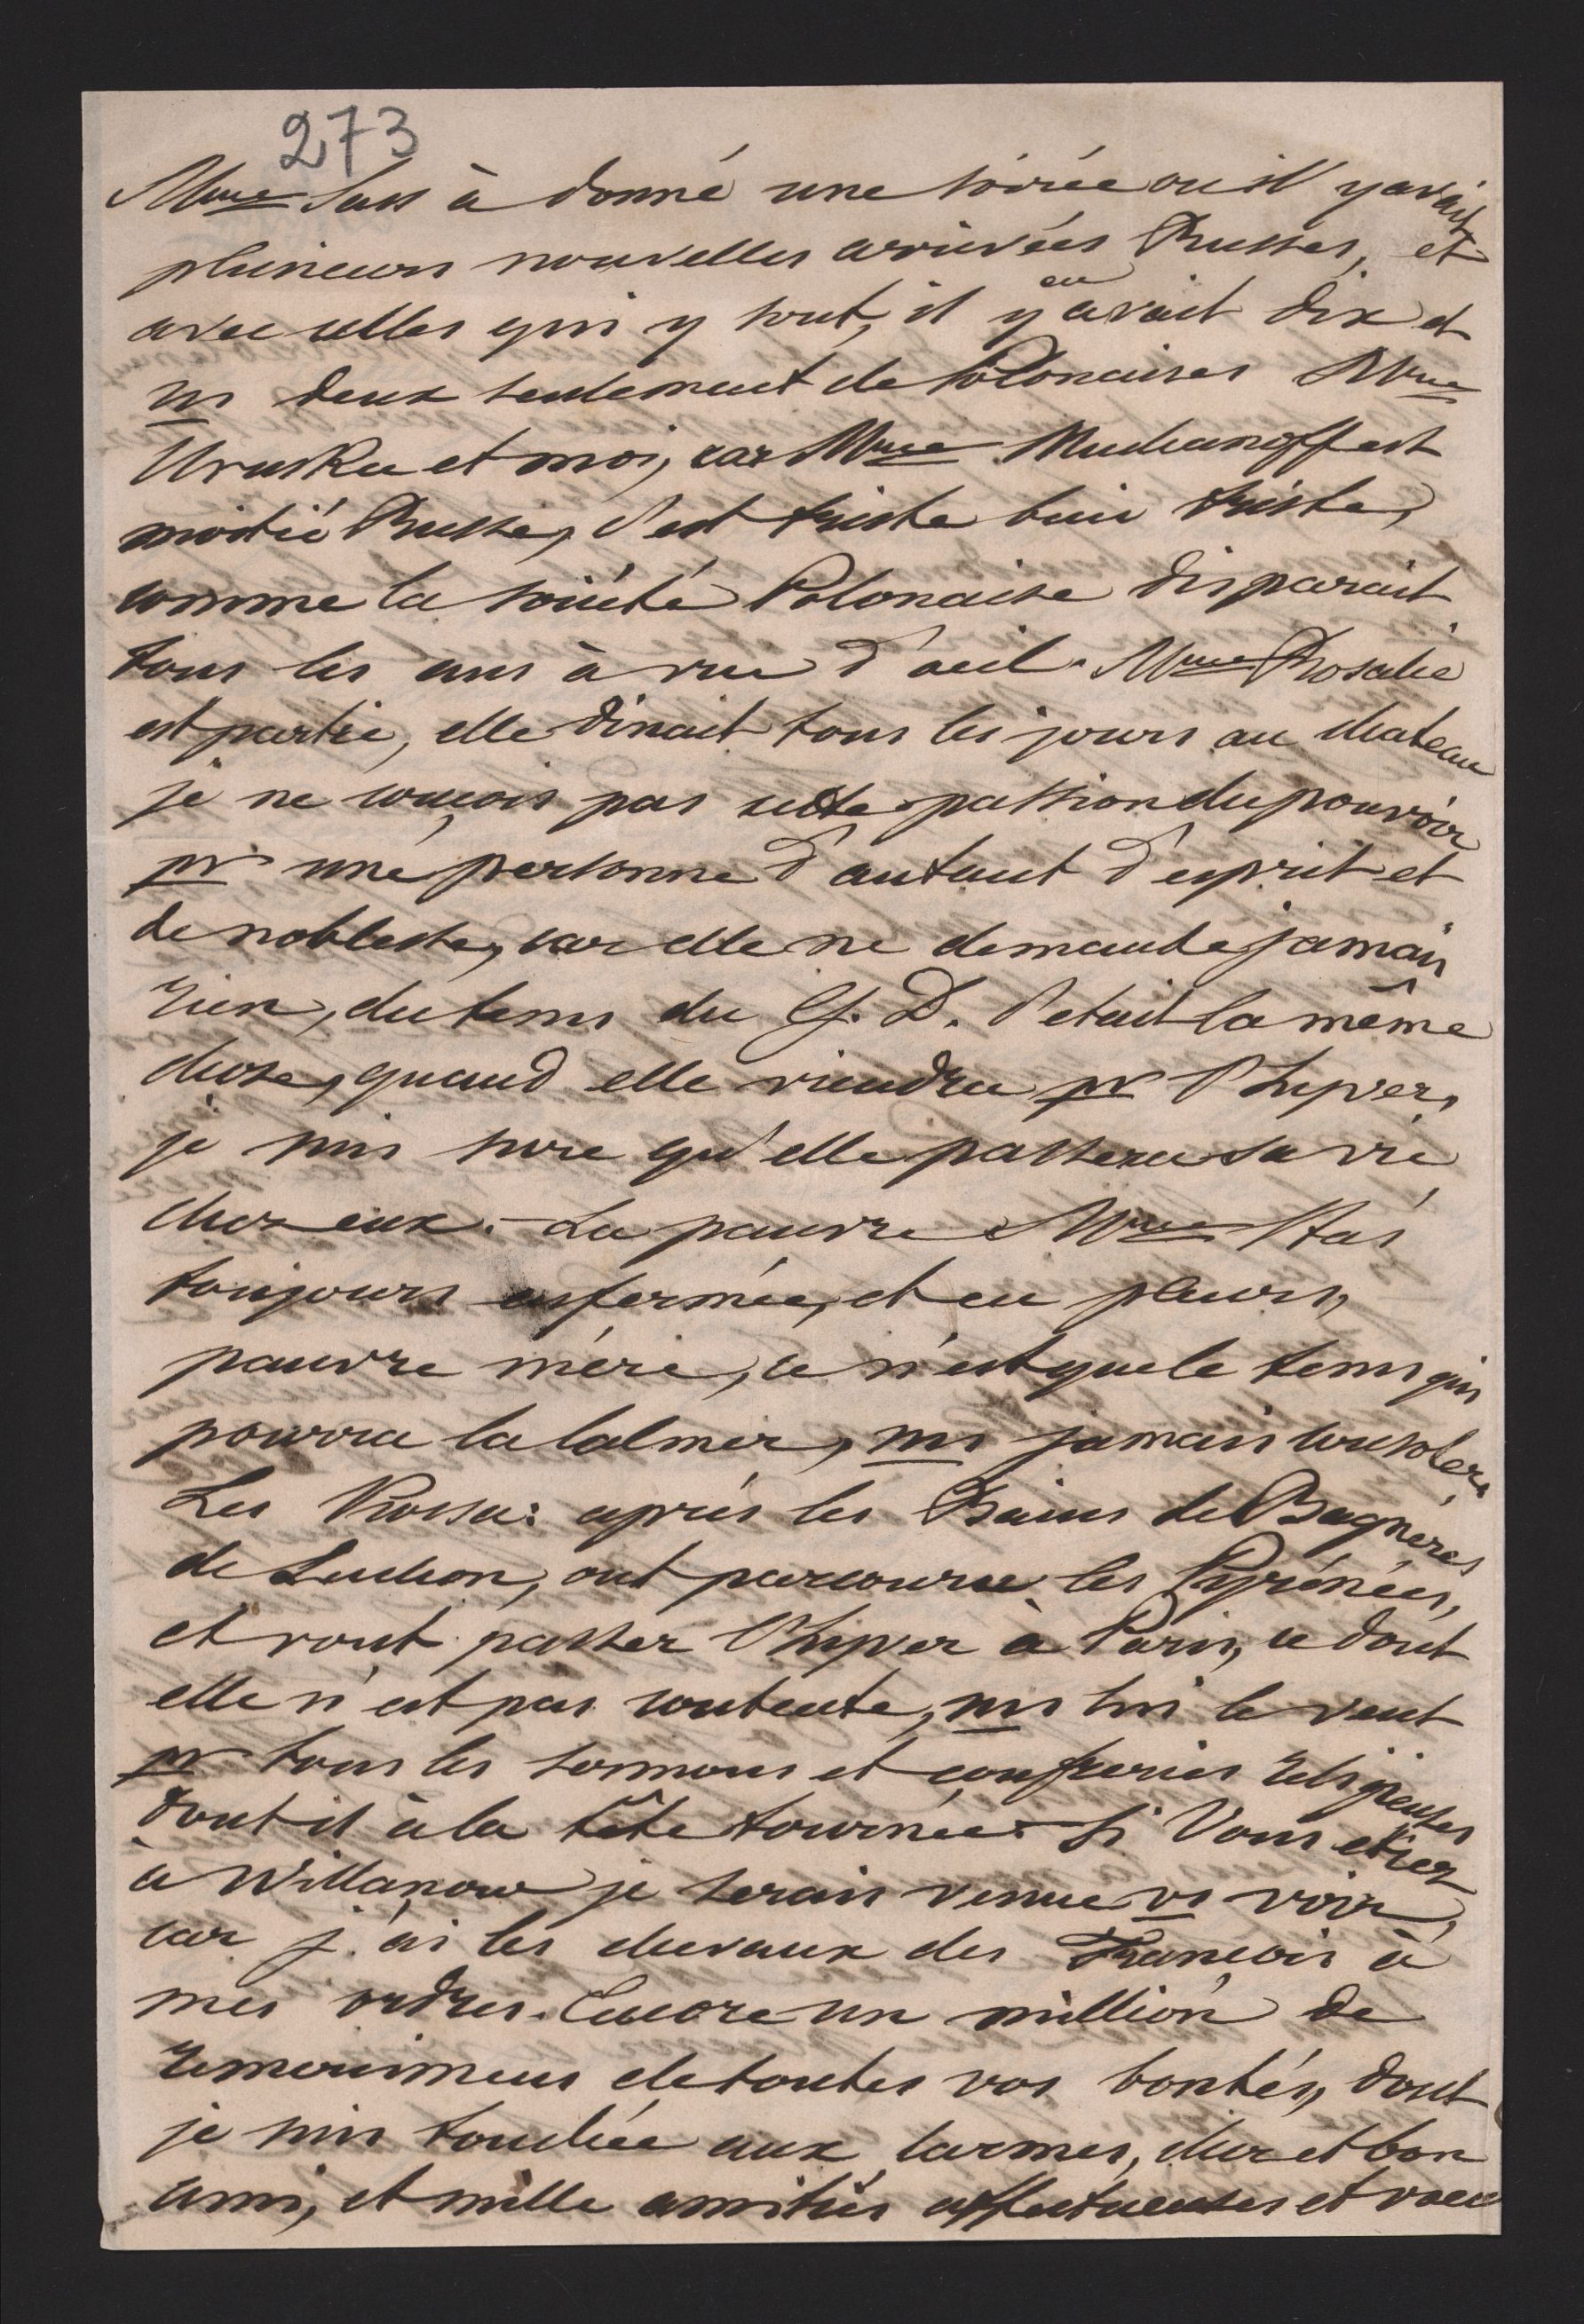 273
Mme Sass à donné une soirée ou il y avait
plusieurs nouvelles arrivées Russes, et
avec celles qui y sont, il y en avait dix et
ms deux seulement de Polonaises Mme
Uruska et moi, car Mme Muchanoff est
moitié Russe, c'est triste bien triste,
comme la société Polonaise disparait
tous les ans à vue d'oeil. Mme Rosalie
est partie, elle dinait tous les jours au chateau
je ne conçois pas cette passion du pouvoir
pr une personne d'autant d'esprit et
de noblesse, car elle ne demande jamais
rien, du tems du G. D. c'etait la même
chose, quand elle viendra pr l'hyver,
je suis sure qu'elle passera sa vie
chez eux. - La pauvre Mme Staś
toujours enfermée, et en pleurs,
pauvre mère, ce n'est que le tems qui
pourra la calmer, ms jamais consoler.
Les Kossa: après les Bains de Bagnères
de Luchon, ont parcouru les Pyrénées,
et vont passer l'hyver à Paris, ce dont
elle n'est pas contente, ms lui le veut
pr tous les sermons et confreries religieuses
dont il à la tête tournée. - Si Vous etiez
à Willanow je serais venue vs voir,
car j'ai les chevaux des François à
mes ordres. Encore un million de
remercimens de toutes vos bontés, dont
je suis touchée aux larmes, cher et bon
ami, et mille amitiés affectueuses et voeux